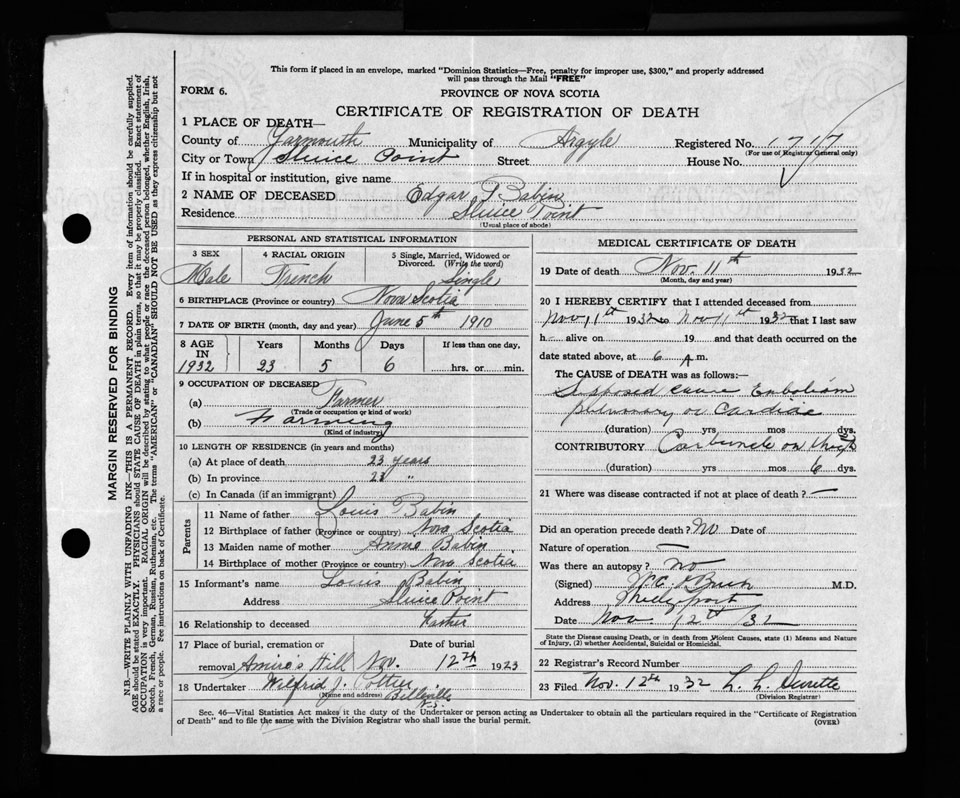 This form if placed in an envelope, marked "Dominion Statistics—Free, penalty for improper use, $300," and properly addressed
will pass through the Mail "FREE"
FORM 6.
PROVINCE OF NOVA SCOTIA
CERTIFICATE OF REGISTRATION OF DEATH
1 PLACE OF DEATH—
County of Yarmouth Municipality of Argyle Registered No. 1717
(For use of Registrar General only)
City or Town Sluice Point Street House No.
If in hospital or institution, give name
2 NAME OF DECEASED Edgar J Babin
Residence Sluice Point
(Usual place of abode)
PERSONAL AND STATISTICAL INFORMATION
3 SEX 4 RACIAL ORIGIN 5 Single, Married, Widowed or
Divorced. (Write the word)
Male French Single
6 BIRTHPLACE (Province or country) Nova Scotia
7 DATE OF BIRTH (month, day and year) June 5th 1910
8 AGE Years Months Days If less than one day,
IN
1932 23 5 6 hrs. or min.
9 OCCUPATION OF DECEASED
(a) Farmer
(Trade or occupation or kind of work)
(b) Farming
(Kind of industry)
10 LENGTH OF RESIDENCE (in years and months)
(a) At place of death 23 years
(b) In province 23 "
(c) In Canada (if an immigrant)
Parents
11 Name of father Louis Babin
12 Birthplace of father (Province or country) Nova Scotia
13 Maiden name of mother Annie Babin
14 Birthplace of mother (Province or country) Nova Scotia
15 Informant's name Louis Babin
Address Sluice Point
16 Relationship to deceased Father
17 Place of burial, cremation or Date of burial
removal Amiro's Hill Nov. 12th 1923
18 Undertaker Wilfrid J. Pottier
(Name and address) Belleville
N.S.
MEDICAL CERTIFICATE OF DEATH
19 Date of death Nov. 11th 1932
(Month, day and year)
20 I HEREBY CERTIFY that I attended deceased from
Nov 11th 1932 to Nov 11th 1932 that I last saw
h alive on 19 and that death occurred on the
date stated above, at 6 A m.
The CAUSE of DEATH was as follows:
Supposed cause Embolism
pulmonary or Cardiac
(duration) yrs mos dys.
CONTRIBUTORY Carbuncle on thigh
(duration) yrs mos 6 dys.
21 Where was disease contracted if not at place of death? —
Did an operation precede death? No Date of
Nature of operation —
Was there an autopsy? no
(Signed) O'Brien M.D.
Address
Date Nov. 12th /32
State the Disease causing Death, or in death from Violent Causes, state (1) Means and Nature
of Injury, (2) whether Accidental, Suicidal or Homicidal.
22 Registrar's Record Number
23 Filed Nov. 12th 1932 L. L. Surette
(Division Registrar)
Sec. 46—Vital Statistics Act makes it the duty of the Undertaker or person acting as Undertaker to obtain all the particulars required in the "Certificate of Registration
of Death" and to file the same with the Division Registrar who shall issue the burial permit.
(OVER)
MARGIN RESERVED FOR BINDING
N.B.—WRITE PLAINLY WITH UNFADING INK—THIS IS A PERMANENT RECORD. Every item of information should be carefully supplied.
AGE should be stated EXACTLY. PHYSICIANS should STATE CAUSE OF DEATH in plain terms, so that it may be properly classified. Exact statement of
OCCUPATION is very important. RACIAL ORIGIN will be described by stating to what people or race the deceased person belonged, whether English, Irish,
Scotch, French, German, Russian, Ruthenian, etc. The terms "AMERICAN" or "CANADIAN" SHOULD NOT BE USED as they express citizenship but not
a race or people. See instructions on back of Certificate.